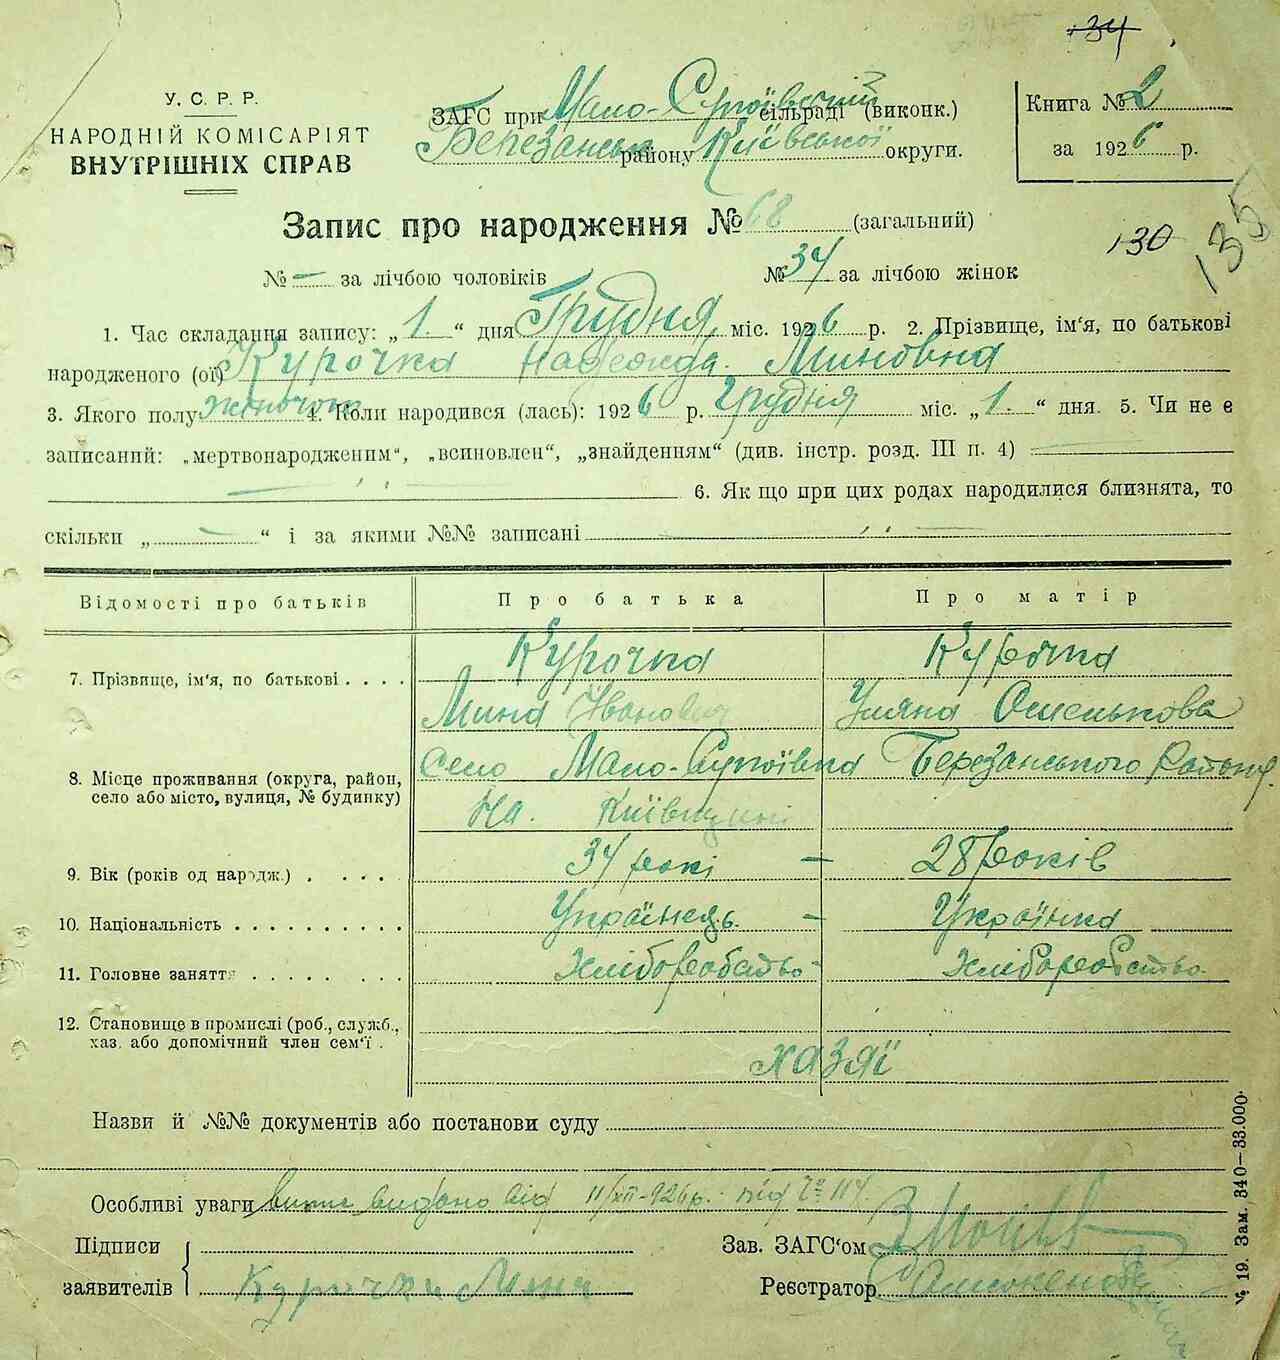 134
У. С. Р. Р.
НАРОДНІЙ КОМІСАРІЯТ
ВНУТРІШНІХ СПРАВ
ЗАГС при Мало-Супоївський сільраді (виконк.)
Березанськ району Київської округи.
Книга № 2
за 1926 р.
Запис про народження № 68 (загальний)
130
135
№ — за лічбою чоловіків № 34 за лічбою жінок
1. Час складання запису: „1.“ дня Грудня міс. 1926 р. 2. Прізвище, ім'я, по батькові
народженого (ої) Курочка Надежда Миновна
3. Якого полу жіночого 4. Коли народився (лась): 1926 р. Грудня міс. „1.“ дня. 5. Чи не є
записаний: „мертвонародженим“, „всиновлен“, „знайденням“ (див. інстр. розд. III п. 4)
6. Як що при цих родах народилися близнята, то
скільки „ — “ і за якими №№ записані
Відомості про батьків Про батька Про матір
7. Прізвище, ім'я, по батькові . . . . Курочка Курочка
Мина Іванович Уляна Омелькова
8. Місце проживання (округа, район, село або місто, вулиця, № будинку) Село Мало-Супоївка Березанського Району
На Київщині
9. Вік (років од народж.) . . . . 34 рокі — 28 років
10. Національність . . . . . . . . . . Українець — Українка
11. Головне заняття . . . . . Хліборобство Хліборобство
12. Становище в промислі (роб., служб.,
хаз. або допомічний член сем'ї . хазяї
Назви й №№ документів або постанови суду
Особливі уваги видано від 11/XII-926р. під № 114.
Підписи
заявителів Курочка Мина
Зав. ЗАГС'ом
Реєстратор
№ 19. Зам. 840—33.000.